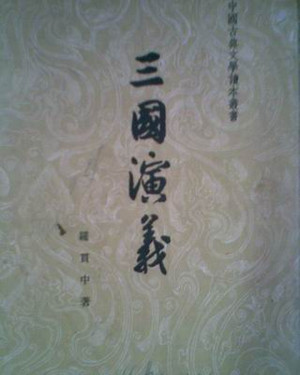 中國古典文學讀本叢書
三國演義
羅貫中著